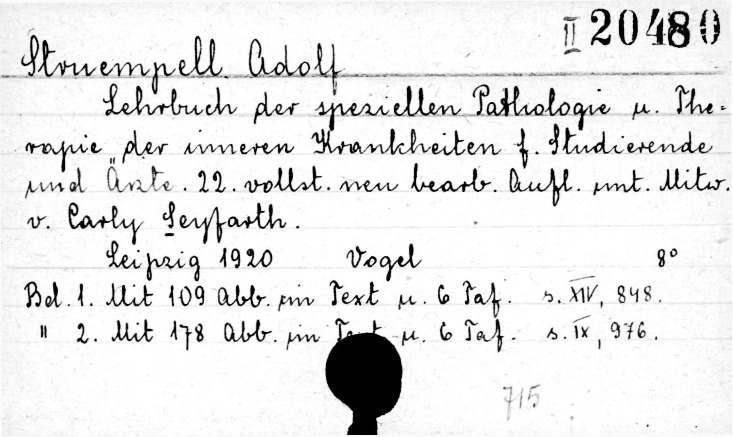 II 20480
Struempell Adolf
Lehrbuch der speziellen Pathologie u. The-
rapie der inneren Krankheiten f. Studierende
und Ärzte. 22. vollst. neu bearb. Aufl. unt. Mitw.
v. Carly Seyfarth.
Leipzig 1920 Vogel 8°
Bd. 1. Mit 109 Abb. im Text u. 6 Taf. s. XIV, 848.
" 2. Mit 178 Abb. im Text u. 6 Taf. s. IX, 976.
715